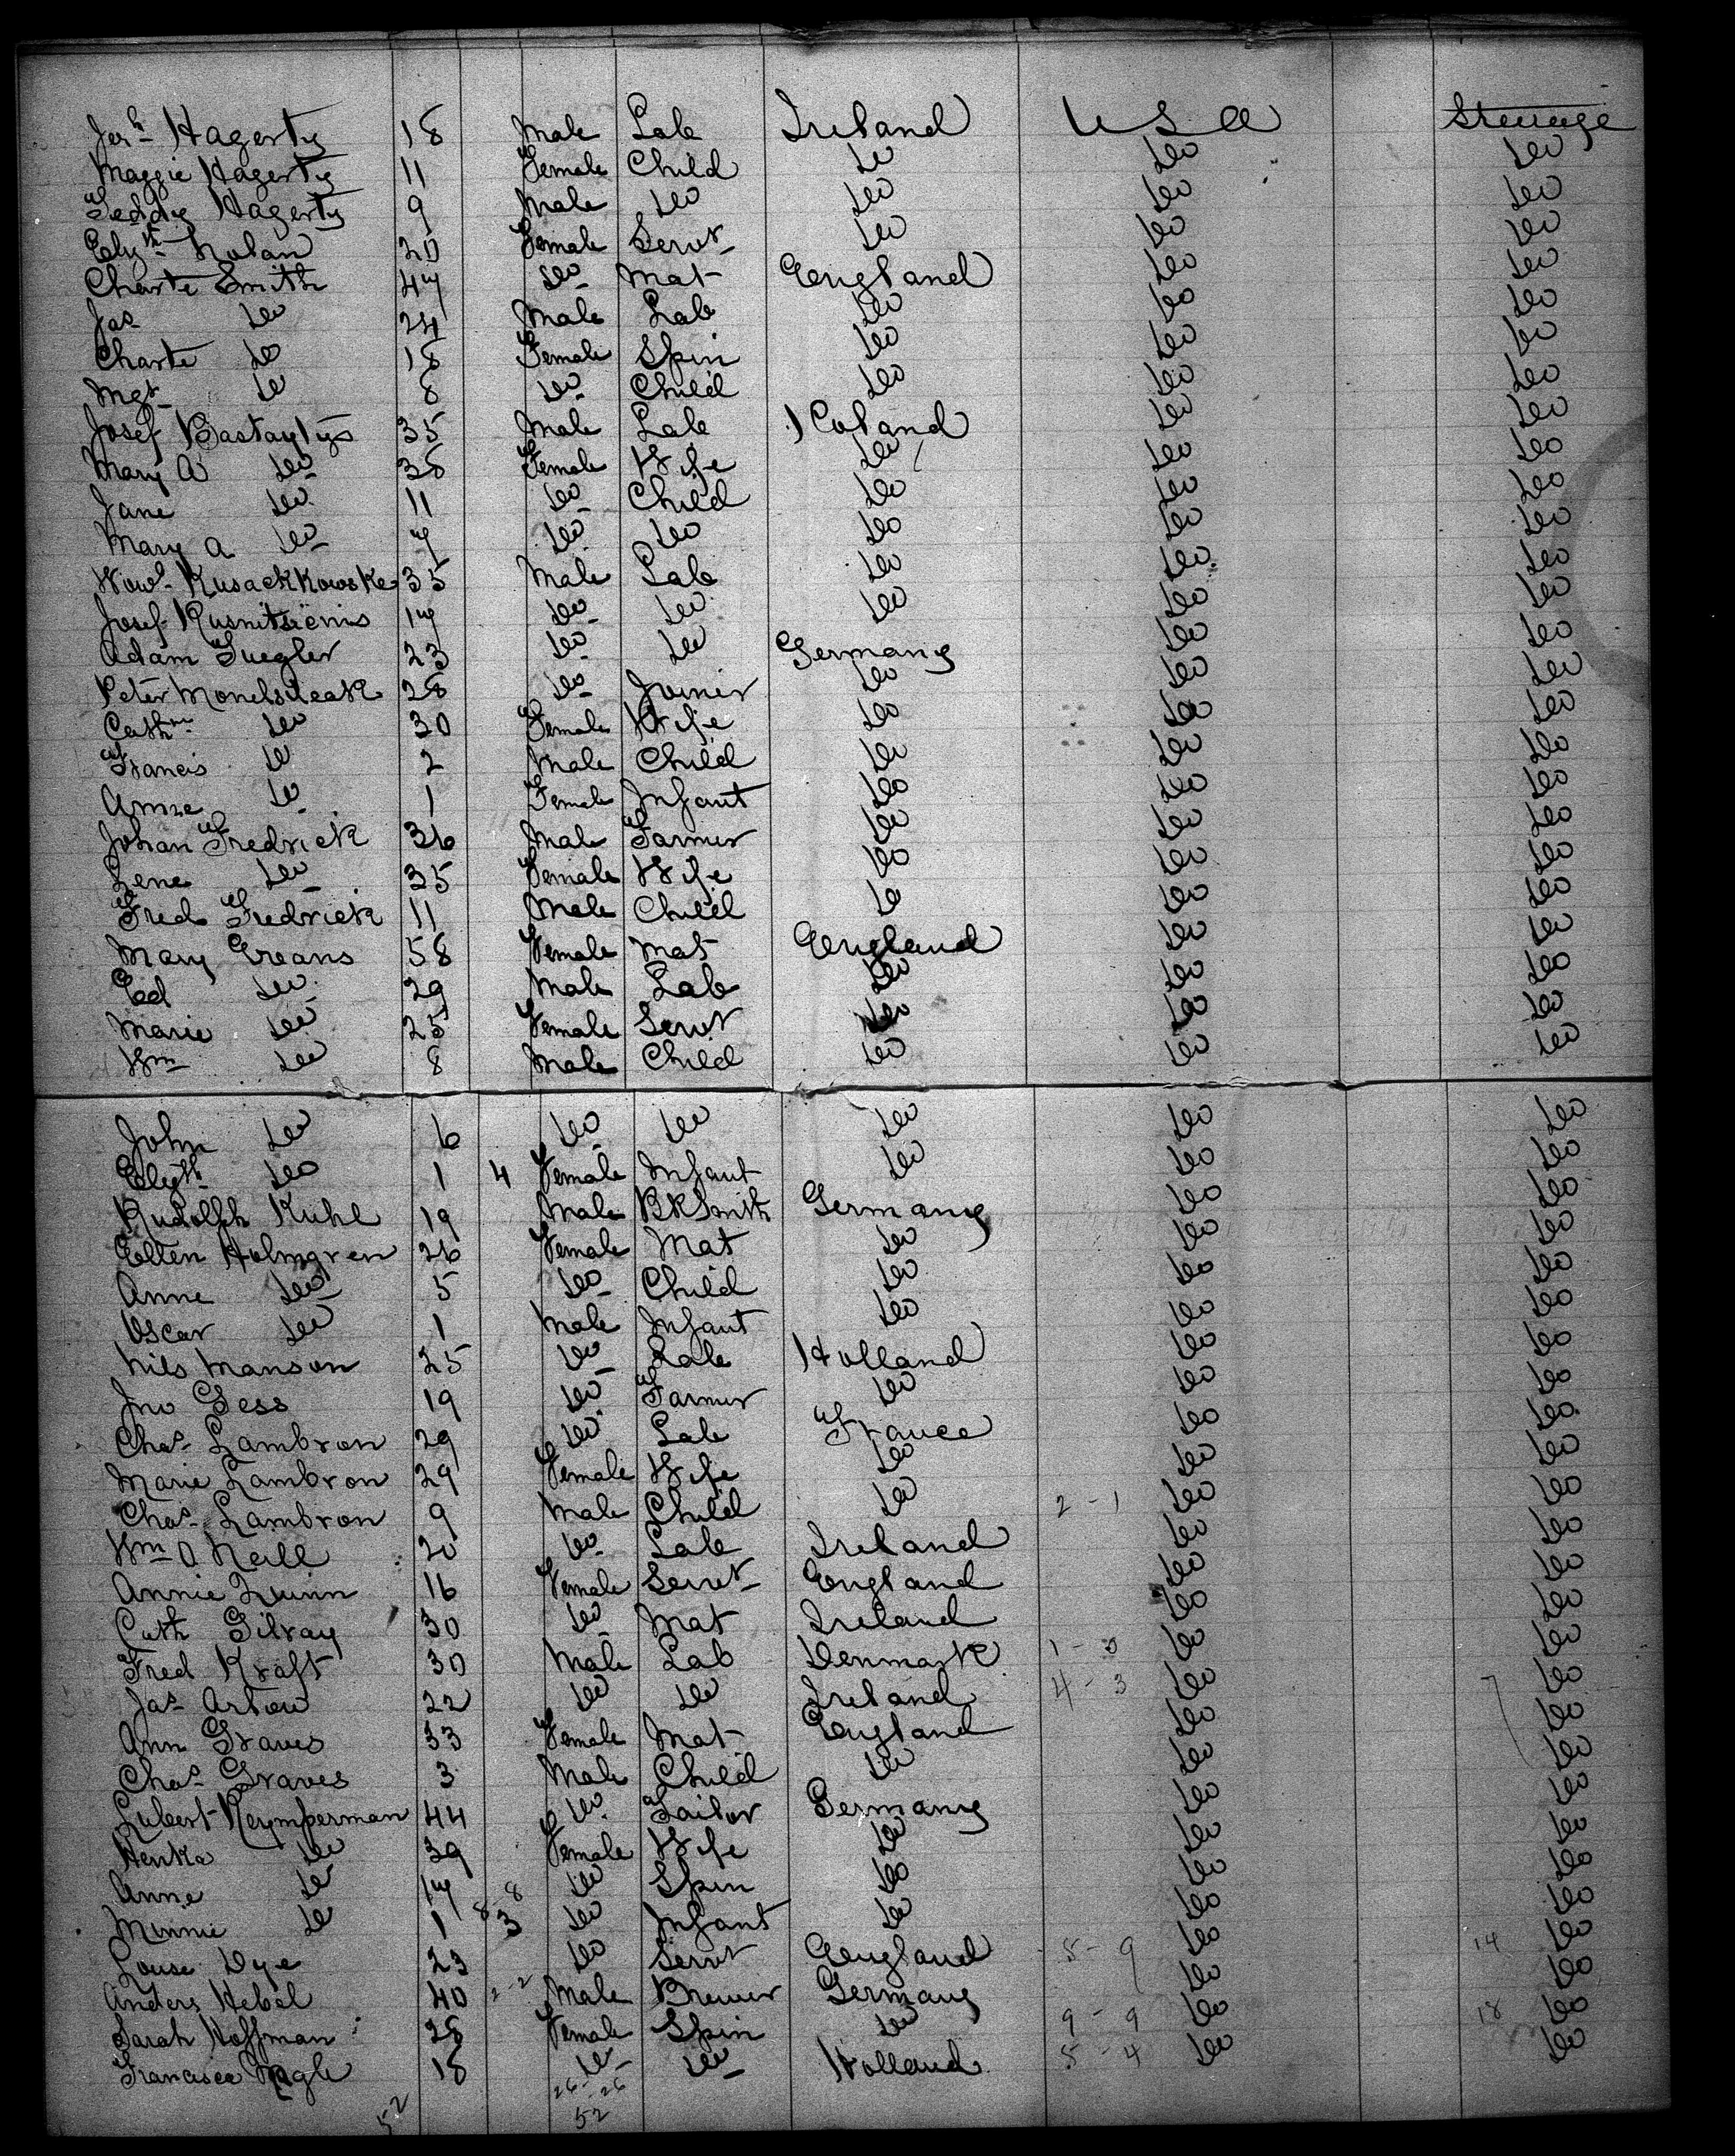 Jerh Hagerty 18 Male Lab Ireland U S A Steerage
Maggie Hagerty 11 Female Child Do Do Do
Teddy Hagerty 9 Male Do Do Do Do
Elizth Nolan 20 Female Servt Do Do Do
Charte Smith 47 Do Mat England Do Do
Jas Do 24 Male Lab Do Do Do
Charte Do 18 Female Spin Do Do Do
Mgt Do 8 Do Child Do Do Do
Josef 35 Male Lab Poland Do Do
Mary A Do 38 Female Wife Do Do Do
Jane Do 11 Do Child Do Do Do
Mary A Do 7 Do Do Do Do Do
Kusackkowske 35 Male Lab Do Do Do
Josef 17 Do Do Do Do Do
Adam 23 Do Do Germany Do Do
Peter 28 Do Joiner Do Do Do
Cathne Do 30 Female Wife Do Do Do
Francis Do 2 Male Child Do Do Do
Annie Do 1 Female Infant Do Do Do
Johan Fredrick 36 Male Farmer Do Do Do
Lene Do 35 Female Wife Do Do Do
Fred Fredrick 11 Male Child Do Do Do
Mary Greans 58 Female Mat England Do Do
Ed Do 29 Male Lab Do Do Do
Marie Do 25 Female Servt Do Do Do
Wm Do 8 Male Child Do Do Do
John Do 6 Do Do Do Do Do
Elizth Do 1 4 Female Infant Do Do Do
Rudolph Kuhl 19 Male BKSmith Germany Do Do
Ellen Holmgren 26 Female Mat Do Do Do
Anne Do 5 Do Child Do Do Do
Oscar Do 1 Male Infant Do Do Do
Nils Manson 25 Do Lab Holland Do Do
Jno Gess 19 Do Farmer Do Do Do
Chas Lambron 29 Do Lab France Do Do
Marie Lambron 29 Female Wife Do Do Do
Chas Lambron 9 Male Child Do 2-1 Do Do
Wm O Neill 20 Do Lab Ireland Do Do
Annie Quinn 16 Female Servt England Do Do
Cath Gilray 30 Do Mat Ireland Do Do
Fred Kraft 30 Male Lab Denmark 1-0 Do Do
Jas Artow 22 Do Do Ireland 4-3 Do Do
Ann Graves 33 Female Mat England Do Do
Chas Graves 3 Male Child Do Do Do
Lubert Reymperman 44 Do Tailor Germany Do Do
Henka Do 39 Female Wife Do Do Do
Anne Do 17 Do Spin Do Do Do
Minnie Do 1 8-8 3 Do Infant Do Do Do
Louse Dye 23 Do Servt England 5-9 Do 14 Do
Anders Hebel 40 2-2 Male Brewer Germany Do Do
Sarah Hoffman 28 Female Spin Do 9-9 Do 18 Do
Francisca 18 Do Do Holland 5-4 Do Do
26-26
52 52